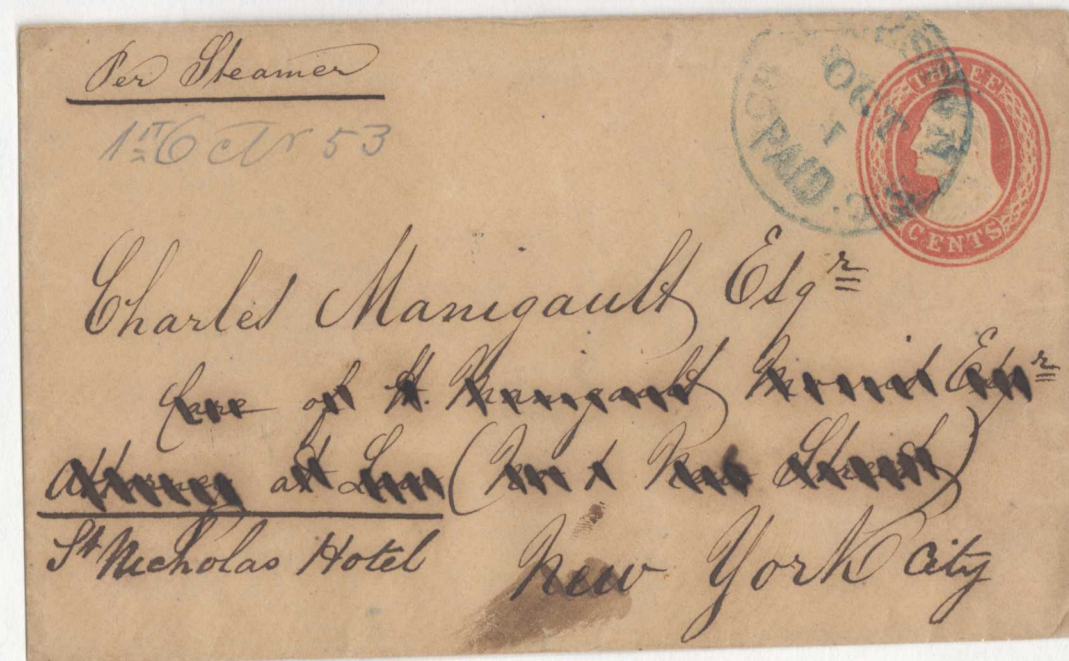 Per Steamer
1st Octr 53
CHARLESTON
OCT
1
PAID
THREE
CENTS
Charles Manigault Esqr
Care of H. Manigault Morris Esqr
Attorney at Law (No 1 New Street)
St Nicholas Hotel
New York City